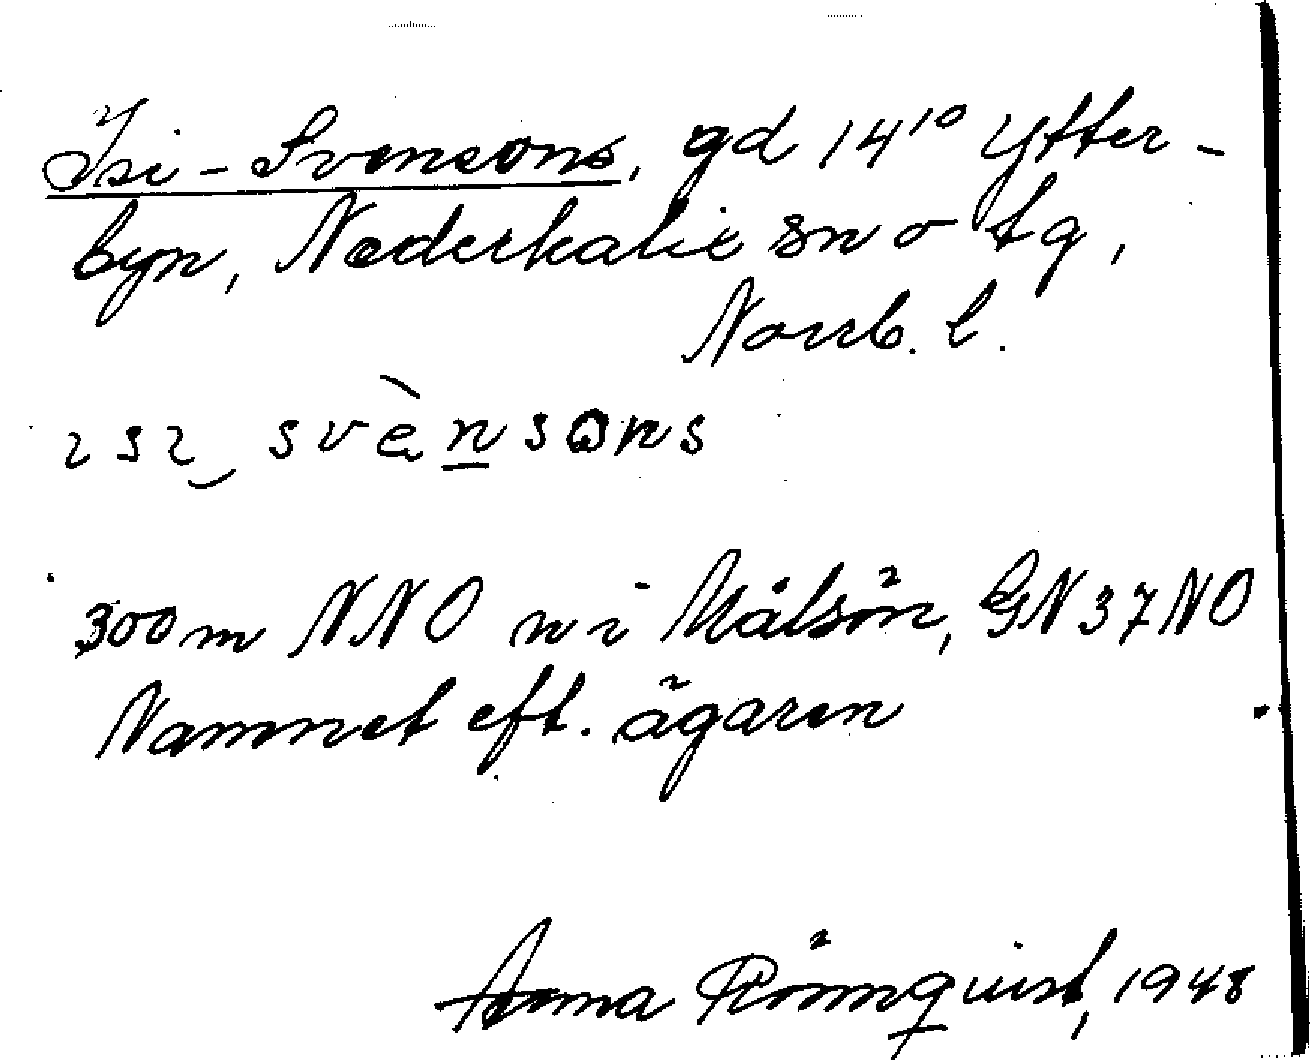 Isi-Svensons, gd 14¹⁰ Ytter-
byn, Nederkalix sn o tg,
Norrb. l.
ısı svènsons
300 m NNO n i Målsön, GN 37 NO
Namnet eft. ägaren
Anna Rönnquist, 1948